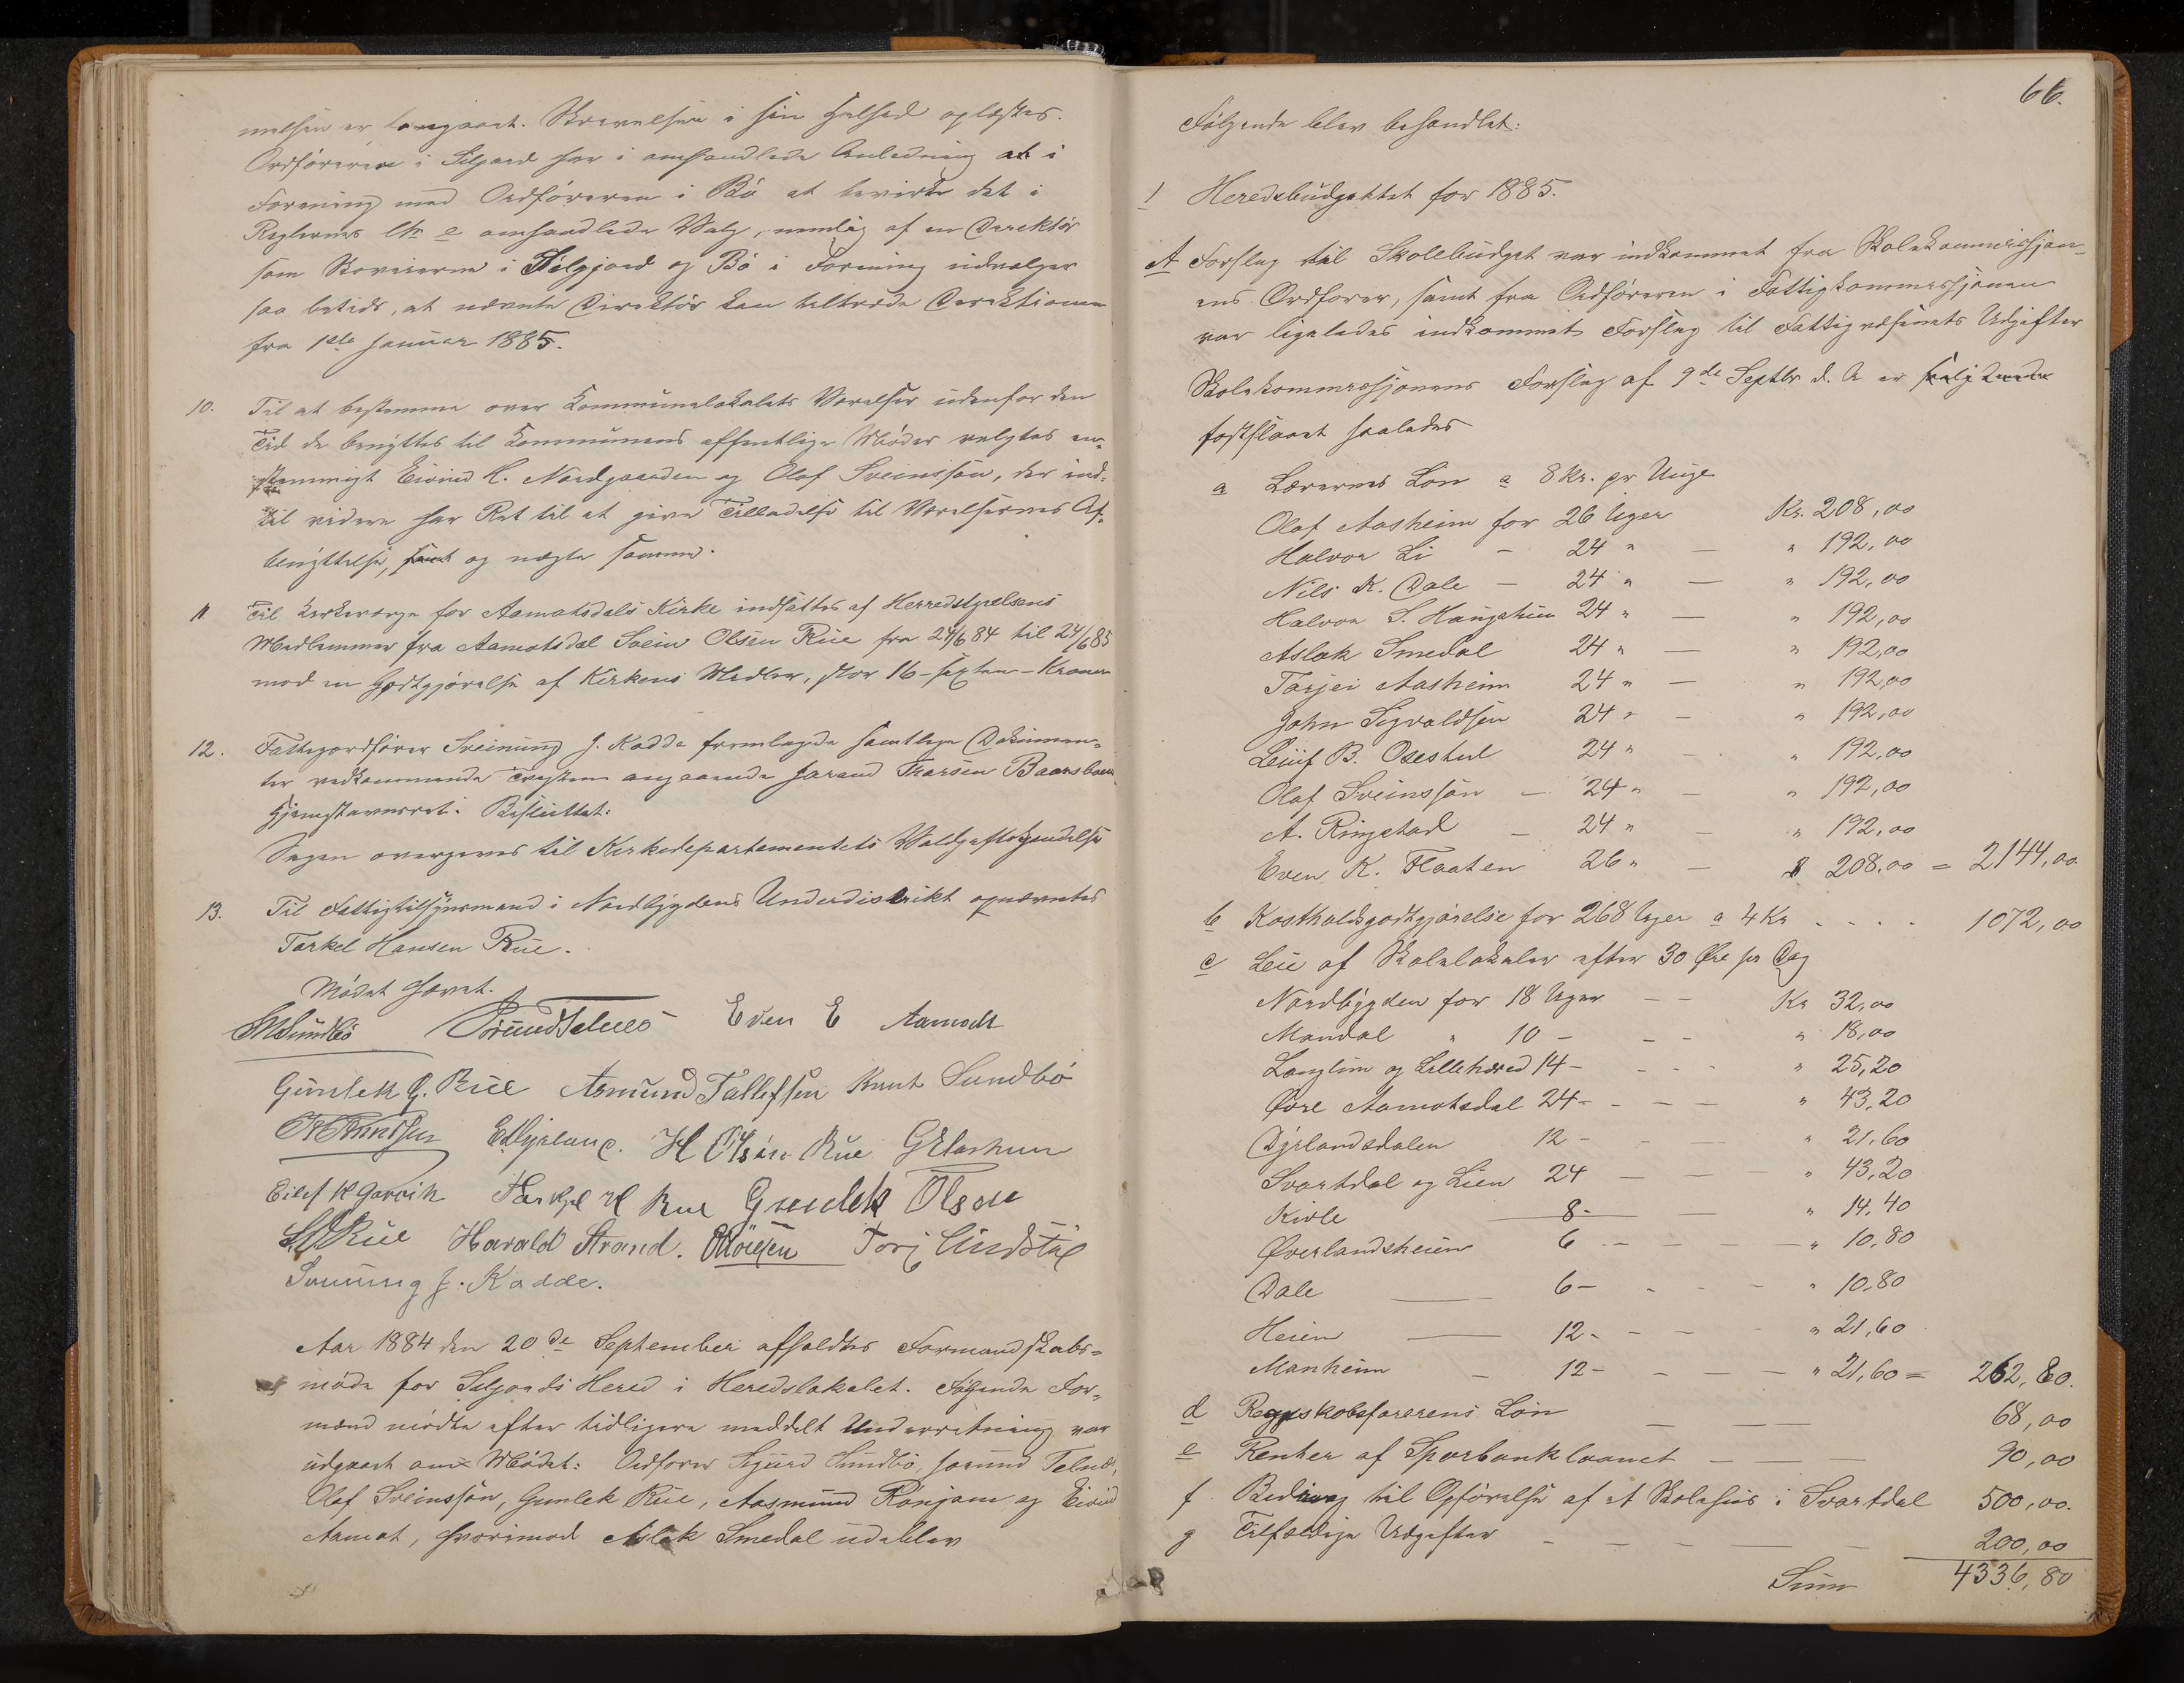 melsen er foregaaet. Skrivelsen i sin Helhed oplæstes.
Ordføreren i Seljord har i omhandlede Anledning at i
Forening med Ordføreren i Bö at bevirke det i
Reglernes e omhandlede Valg, nemlig af en Direktör
som Skoveierne i Seljord og Bö i Forening udvælger
saa betids, at nævnte Direktör kan tiltræde Direktionen
fra 1ste Januar 1885.
10. Til at bestemme over Kommunelokalets Værelser udenfor den
Tid de benyttes til Kommunens offentlige Möder valgtes en-
stemmigt Eivind H. Nordgaarden og Olaf Sveinssön, der ind-
til videre har Ret til at give Tilladelse til Værelsernes Af-
benyttelse, samt og nægte samme.
11 Til Kirkeværge for Aamotsdals Kirke indsattes af Herredstyrelsens
Medlemmer fra Aamotsdal Svein Olsen Rue fra 24/6 84 til 24/6 85
mod en Godtgjörelse af Kirkens Midler, stor 16 - sexten - Kroner
12. Fattigordförer Sveinung J. Kadde fremlagde samtlige Dokumen-
ter vedkommende Tvisten angaaende Jarand Tharsen
Hjemstavnsret. Besluttet:
Sagen overgives til Kirkedepartementets Voldgiftskjendelse
13. Til Fattigtilsynsmand i Nordbygdens Underdistrikt opnævntes
Tarkel Hansen Rue.
Mödet hævet.
SSundbö Jorund Telnes Even E Aamodt
Gunlek G. Rue Asmund Tallefsen Knut Sundbö
E. Dyrland. H Olsen Rue
Eilef K Garvik Tarkjel H Rue Gunlek Olsen
S. O Rue Harald Strand. Torj Lindstøl
Sveinung J. Kadde.
Aar 1884 den 20de September afholdtes Formandskabs-
möde for Seljords Hered i Heredslokalet. Følgende For-
mænd mödte efter tidligere meddelt Underretning var
udgaaet om Mödet: Ordförer Sjurd Sundbö, Jorund Telnes,
Olaf Sveinssön, Gunlek Rue, Aasmund Rönjom og Eivind
Aamot, hvorimod Aslak Smedal udeblev
66.
Følgende blev behandlet:
1 Heredsbudgettet for 1885.
A Forslag til Skolebudget var indkommet fra Skolekommissjon-
ens Ordfører, samt fra Ordføreren i Fattigkommissjonen
var ligeledes indkommet Forslag til Fattigvæsenets Udgifter
Skolekommissjonens Forslag af 9de Septbr d. A. er
fastslaaet saaledes
a Lærernes Lön a 8 Kr. pr Uge
Olaf Aasheim for 26 Uger Kr. 208,00
Halvor Li - 24 " — " 192,00
Nils K. Dale — 24 " — " 192,00
Halvor S. Haugehien 24 " — " 192,00
Aslak Smedal 24 " — " 192,00
Tarjei Aasheim 24 " — " 192,00
John Sigvaldsen 24 " — " 192,00
Leiuf B. Osestul 24 " - " 192,00
Olaf Sveinssön — 24 " — " 192,00
A. Ringstad — 24 " — " 192,00
Even K. Flaaten 26 " — " 208,00 = 2144,00.
b Kostholdsgodtgjörelse for 268 Uger a 4 Kr - - - - 1072,00
c Leie af Skolelokaler efter 30 Øre pr Dag
Nordbygden for 18 Uger — — Kr 32,00
Mandal " 10 — - - " 18,00
Langlim og Lillehered 14 — - - - " 25,20
Øvre Aamotsdal 24 - - — — " 43,20
Dyrlandsdalen 12 - - — " 21,60
Svartdal og Lien 24 — — — " 43,20
Kivle — 8 - — " 14,40
Øverlandsheien 6 - — — — " 10,80
Dale — 6 — - - - " 10,80
Heien — 12 - - — - " 21,60
Manheim - 12 — - — — " 21,60 = 262,80.
d Regnskabsførerens Lön — — — 68,00
e Renter af Sparbanklaanet — — — 90,00
f Bidrag til Opførelse af et Skolehus i Svartdal 500,00.
g Tilfældige Udgifter - — — — — 200,00
Sum 4336,80